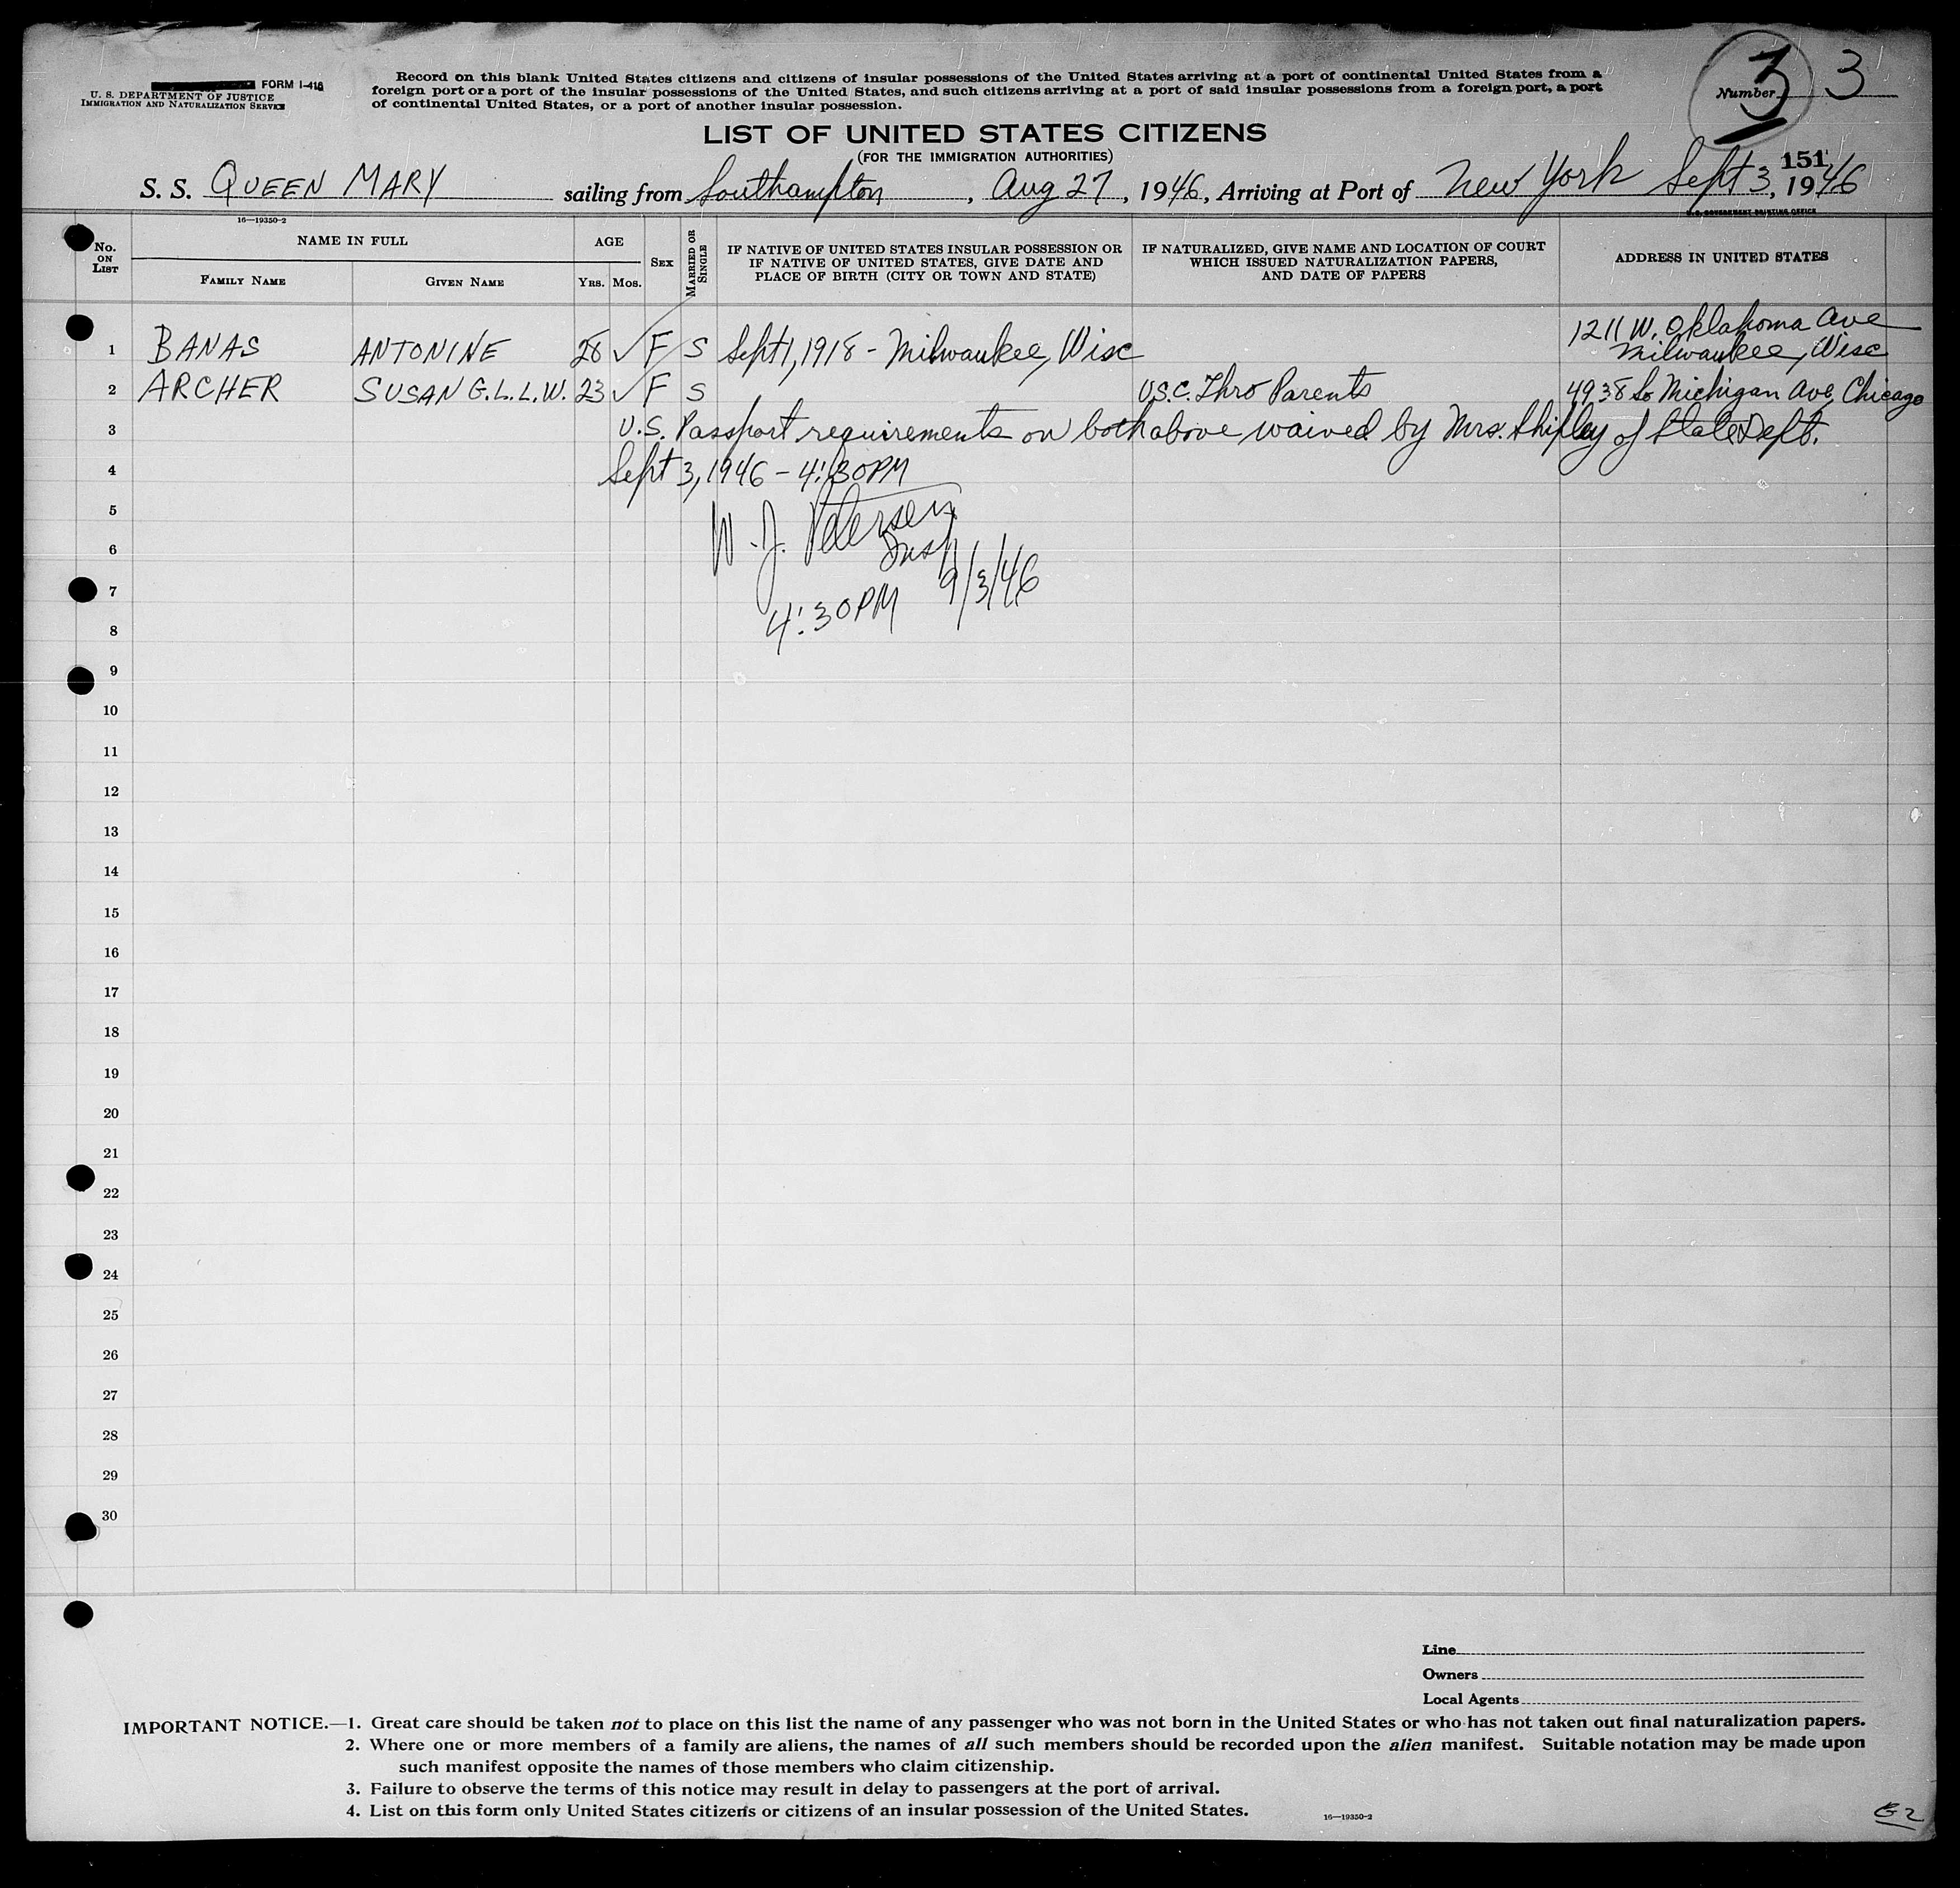 FORM I-416
U. S. DEPARTMENT OF JUSTICE
IMMIGRATION AND NATURALIZATION SERVICE
Record on this blank United States citizens and citizens of insular possessions of the United States arriving at a port of continental United States from a
foreign port or a port of the insular possessions of the United States, and such citizens arriving at a port of said insular possessions from a foreign port, a port
of continental United States, or a port of another insular possession.
3
Number 3
LIST OF UNITED STATES CITIZENS
(FOR THE IMMIGRATION AUTHORITIES)
151
S. S. QUEEN MARY sailing from Southampton, Aug 27, 1946, Arriving at Port of New York Sept 3, 1946
16—19350-2
U.S. GOVERNMENT PRINTING OFFICE
No. ON LIST
NAME IN FULL
FAMILY NAME
GIVEN NAME
AGE
YRS. MOS.
SEX
MARRIED OR SINGLE
IF NATIVE OF UNITED STATES INSULAR POSSESSION OR
IF NATIVE OF UNITED STATES, GIVE DATE AND
PLACE OF BIRTH (CITY OR TOWN AND STATE)
IF NATURALIZED, GIVE NAME AND LOCATION OF COURT
WHICH ISSUED NATURALIZATION PAPERS,
AND DATE OF PAPERS
ADDRESS IN UNITED STATES
1 BANAS ANTONINE 28 ✓ F S Sept 1, 1918 - Milwaukee, Wisc 1211 W. Oklahoma Ave
Milwaukee, Wisc
2 ARCHER SUSAN G.L.L.W. 23 ✓ F S U.S.C. Thro Parents 4938 So Michigan Ave, Chicago
3 U.S. Passport requirements on both above waived by Mrs. Shipley of State Dept.
4 Sept 3, 1946 - 4:30PM
5 W. J. Petersen
6 Insp
7 9/3/46
8 4:30PM
9
10
11
12
13
14
15
16
17
18
19
20
21
22
23
24
25
26
27
28
29
30
Line
Owners
Local Agents
IMPORTANT NOTICE.—1. Great care should be taken not to place on this list the name of any passenger who was not born in the United States or who has not taken out final naturalization papers.
2. Where one or more members of a family are aliens, the names of all such members should be recorded upon the alien manifest. Suitable notation may be made upon
such manifest opposite the names of those members who claim citizenship.
3. Failure to observe the terms of this notice may result in delay to passengers at the port of arrival.
4. List on this form only United States citizens or citizens of an insular possession of the United States.
16—19350-2